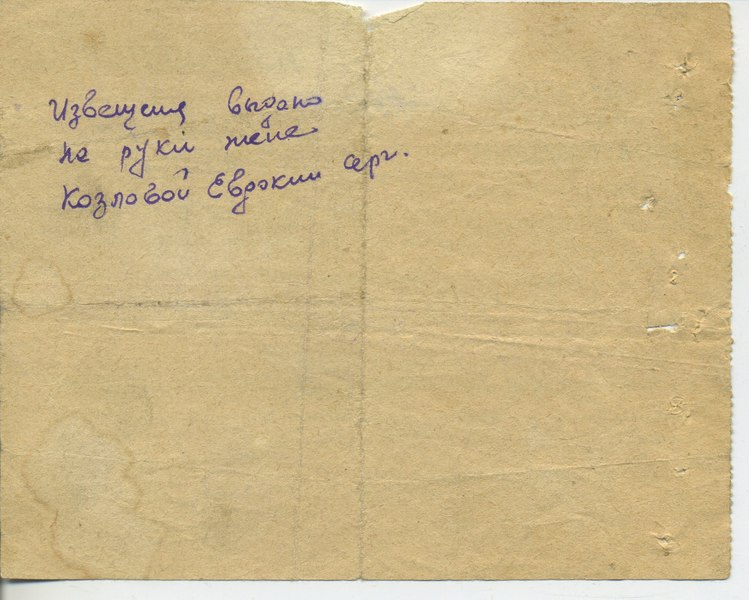 Извещения выдано
на руки жене
Козловой Евдокии серг.